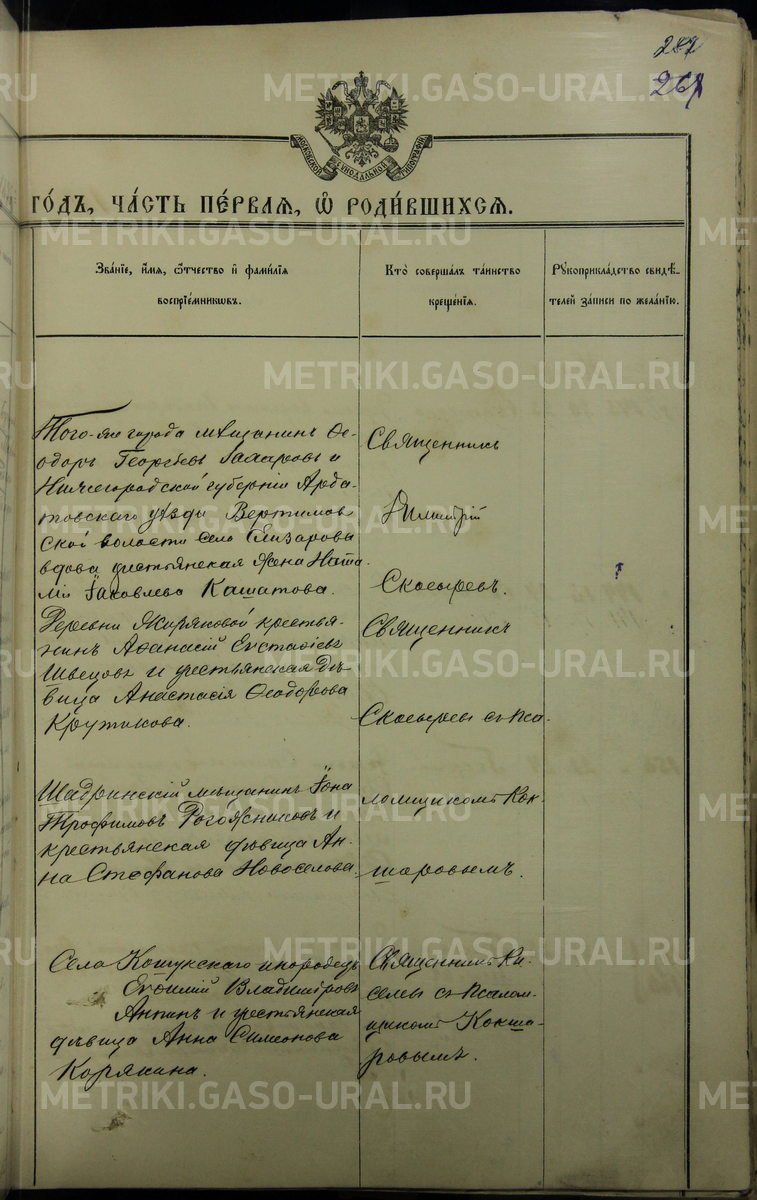 267
METRIKI.GASO-URAL.RU
МОСКОВСКОЙ СѴНОДАЛЬНОЙ ТИПОГРАФІИ
ГОДЪ, ЧАСТЬ ПЕРВАЯ, Ѿ РОДИВШИХСЯ.
METRIKI.GASO-URAL.RU
Званіе, имя, отчество и фамилія
воспріемниковъ.
Кто совершалъ таинство
крещенія.
Рукоприкладство свидѣ-
телей записи по желанію.
METRIKI.GASO-URAL.RU
Того-же города мѣщанинъ Ѳе-
одоръ Георгіевъ и
Нижегородской губерніи Арда-
товскаго уѣзда
ской волости села Елизарова
вдова крестьянская жена Ната-
лія Іаковлева Кашатова.
Священникъ
Димитрій
Скосыревъ.
Деревни Жиряковой крестья-
нинъ Аѳанасій Евстафіевъ
Швецовъ и крестьянская дѣ-
вица Анастасія Ѳеодорова
Крутикова.
Священникъ
Скосыревъ съ пса-
Шадринскій мѣщанинъ Іона
Трофимовъ Рогожниковъ и
крестьянская дѣвица Ан-
на Стефанова Новоселова.
ломщикомъ Кок-
шаровымъ.
Села Кошукскаго инородецъ
Евѳимій Владиміровъ
Анпинъ и крестьянская
дѣвица Анна Симеонова
Корякина.
Священникъ Ки-
селевъ съ псалом-
щикомъ Кокша-
ровымъ.
METRIKI.GASO-URAL.RU